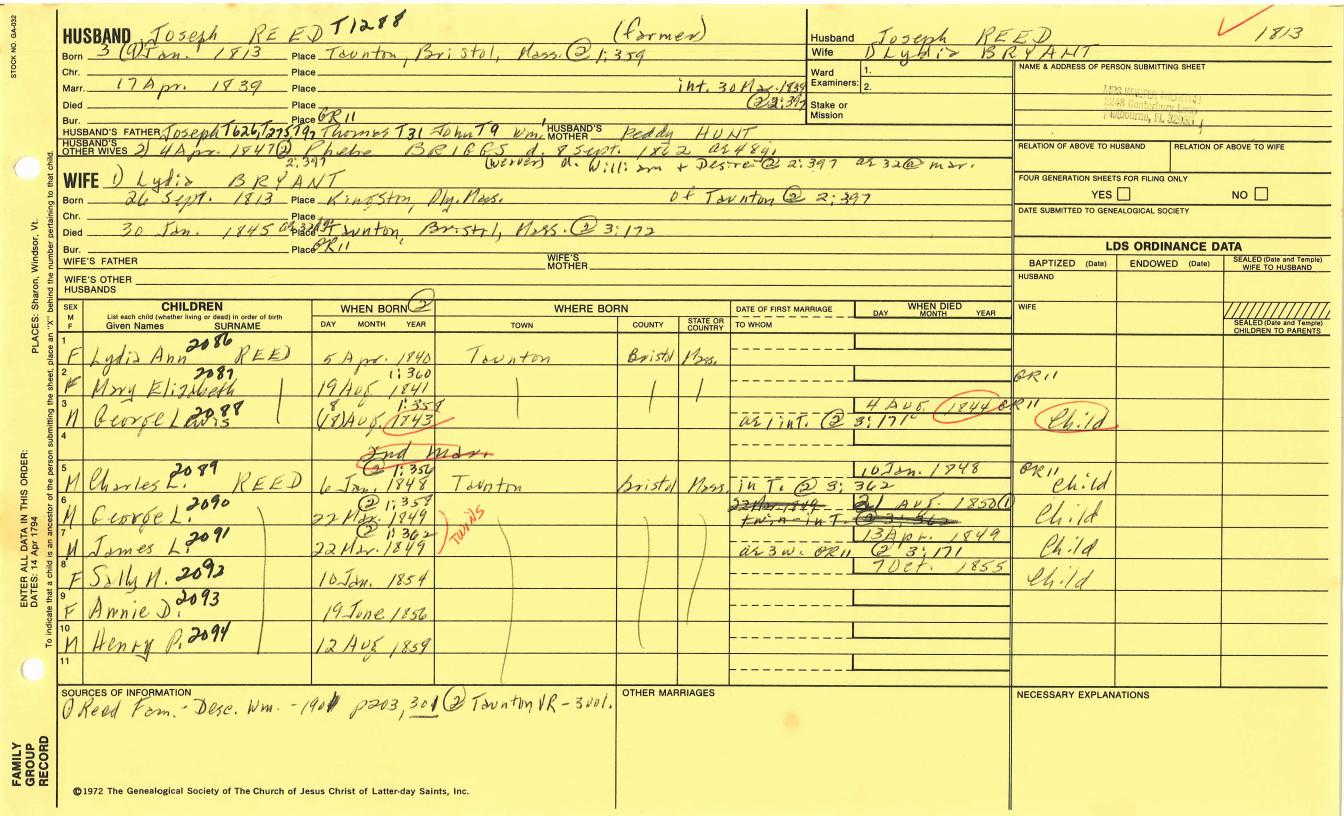 STOCK NO. GA-032
HUSBAND Joseph REED T1288 (farmer)
Husband Joseph REED 1813
Wife 1) Lydia BRYANT
Born 3 (9) Jan. 1813 Place Taunton, Bristol, Mass. ② 1:359
Chr. Place
Marr. 17 Apr. 1839 Place int. 30 Mar. 1839
② 2:397
Died Place
Bur. Place GR11
Ward 1.
Examiners: 2.
Stake or
Mission
NAME & ADDRESS OF PERSON SUBMITTING SHEET
RELATION OF ABOVE TO HUSBAND RELATION OF ABOVE TO WIFE
FOUR GENERATION SHEETS FOR FILING ONLY
YES NO
DATE SUBMITTED TO GENEALOGICAL SOCIETY
HUSBAND'S FATHER Joseph T626, T275, T92 Thomas T31 John T9 Wm.' HUSBAND'S MOTHER Peddy HUNT
HUSBAND'S OTHER WIVES 2) 4 Apr. 1847 ② Phebe BRIGGS d. 8 Sept. 1862 ae 48y.
2:397 (weaver) d. William + Desire ② 2:397 ae 32 @ mar.
WIFE 1) Lydia BRYANT
Born 26 Sept. 1813 Place Kingston, Ply. Mass. of Taunton ② 2:397
Chr. Place
Died 30 Jan. 1845 Place Taunton, Bristol, Mass. ② 3:172
Bur. Place GR11
WIFE'S FATHER WIFE'S MOTHER
WIFE'S OTHER HUSBANDS
LDS ORDINANCE DATA
BAPTIZED (Date) ENDOWED (Date) SEALED (Date and Temple) WIFE TO HUSBAND
HUSBAND
WIFE
SEALED (Date and Temple) CHILDREN TO PARENTS
SEX M F CHILDREN WHEN BORN ② WHERE BORN DATE OF FIRST MARRIAGE WHEN DIED
List each child (whether living or dead) in order of birth
Given Names SURNAME DAY MONTH YEAR TOWN COUNTY STATE OR COUNTRY TO WHOM DAY MONTH YEAR
1 F Lydia Ann 2086 REED 5 Apr. 1840 Taunton Bristol Mass.
2 F Mary Elizabeth 2087 1:360 19 Aug. 1841 GR11
3 M George Lewis 2088 8 1:358 (18) Aug. 1843 ae 1 int. ② 3:171 4 Aug. 1844 GR11 Child
4 2nd mar.
5 M Charles L. 2089 REED ② 1:356 6 Jan. 1848 Taunton Bristol Mass. in T. ② 3:362 10 Jan. 1848 GR11 Child
6 M George L. 2090 ② 1:358 22 Mar. 1849 22 Mar. 1849 twin-in T. 21 Aug. 1850 ① ② 3:362 Child
TWINS
7 M James L. 2091 ② 1:362 22 Mar. 1849 ae 3w. GR11 ② 3:171 13 Apr. 1849 Child
8 F Sally N. 2092 10 Jan. 1854 7 Oct. 1855 Child
9 F Annie D. 2093 19 June 1856
10 M Henry P. 2094 12 Aug 1859
11
SOURCES OF INFORMATION
① Reed Fam. - Desc. Wm. - 1901 p203, 301 ② Taunton VR - 3 vol.
OTHER MARRIAGES
NECESSARY EXPLANATIONS
©1972 The Genealogical Society of The Church of Jesus Christ of Latter-day Saints, Inc.
PLACES: Sharon, Windsor, Vt.
ENTER ALL DATA IN THIS ORDER:
DATES: 14 Apr 1794
To indicate that a child is an ancestor of the person submitting the sheet, place an "X" behind the number pertaining to that child.
FAMILY
GROUP
RECORD